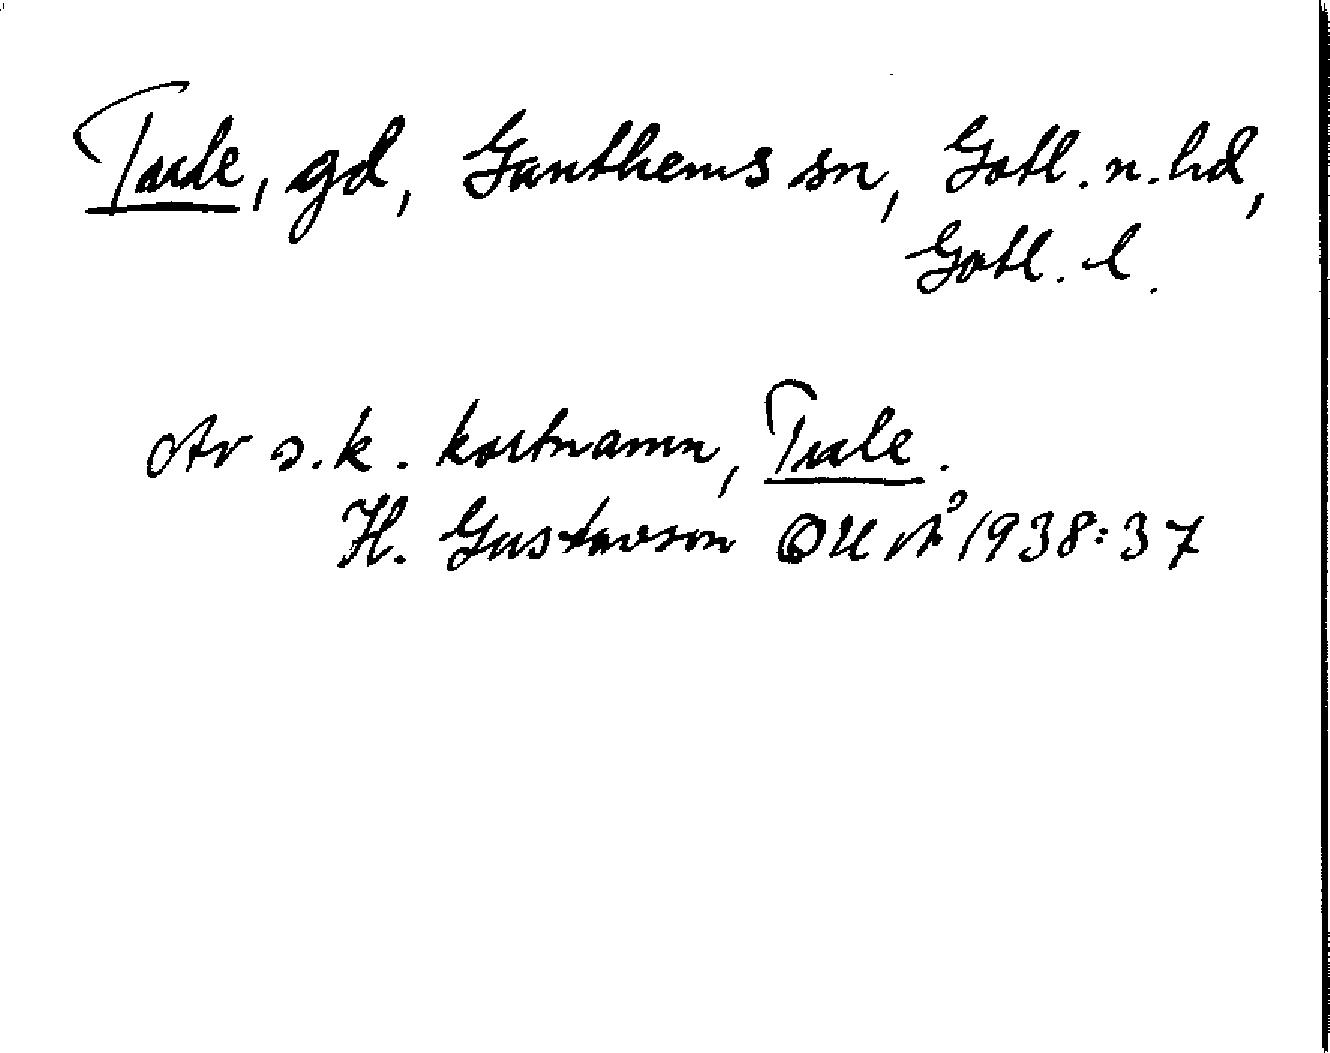 Taule, gd, Ganthems sn, Gotl. n. hd,
Gotl. l.
Är s.k. kortnamn, Tule.
H. Gustavson OUÅ 1938:37